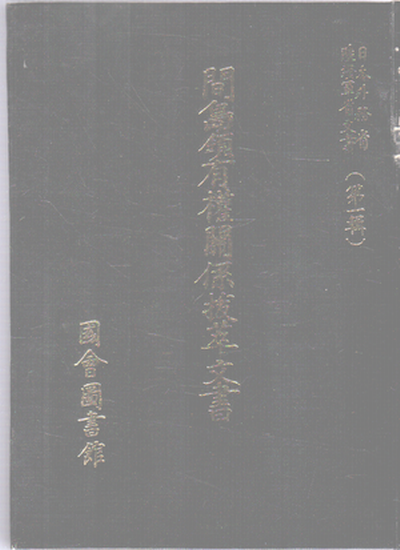 日本外務省
陸海軍省文書
(第一輯)
間島領有權關係拔萃文書
國會圖書館